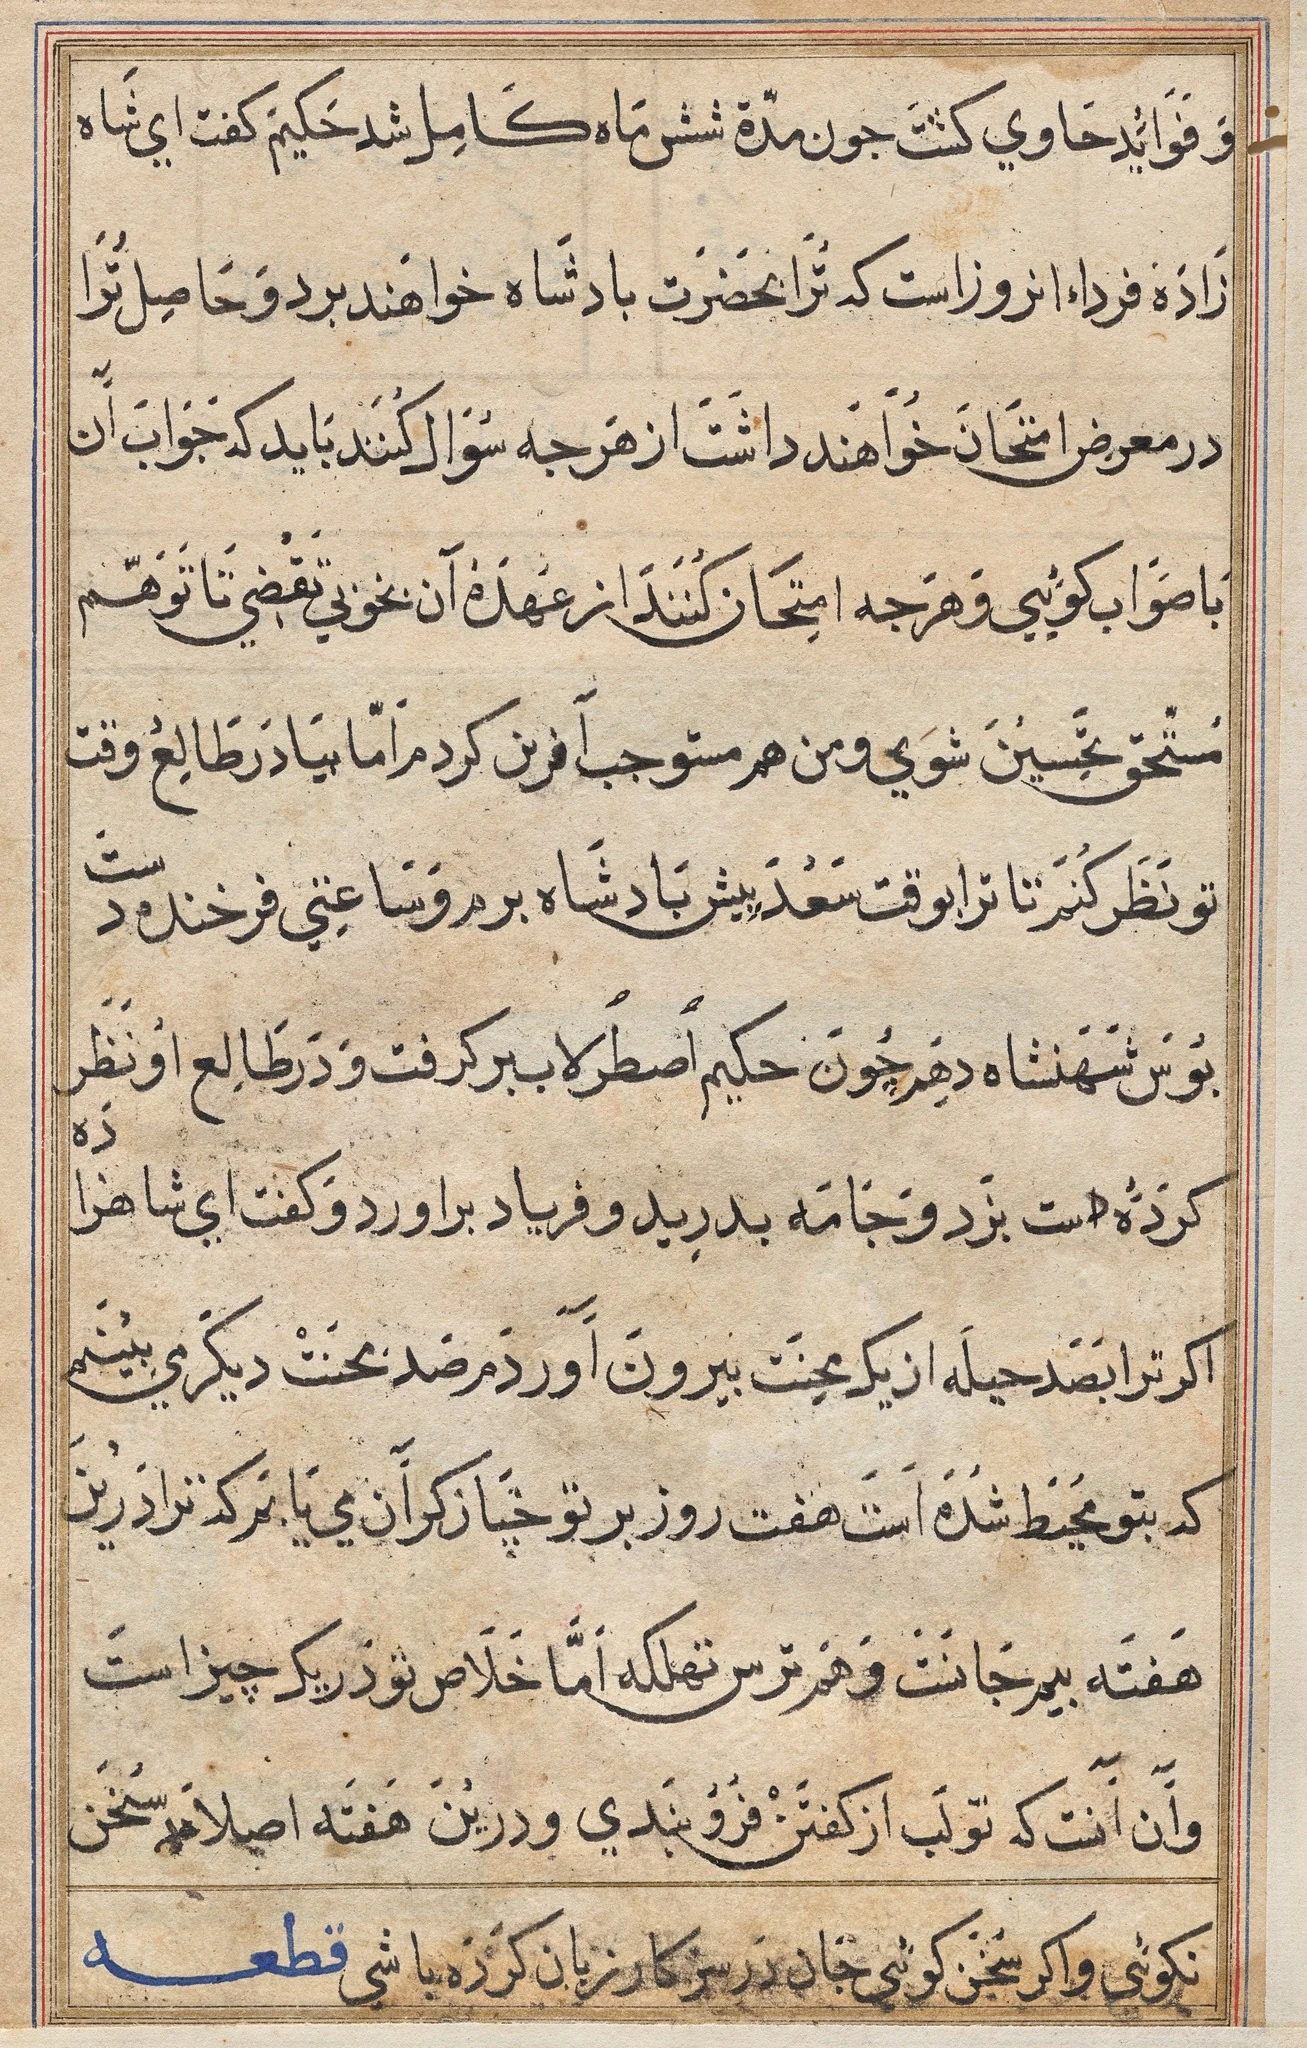 و فوائد حاوي كشت جون مدّة شش ماه كامل شد حكيم كفت اي شاه
زاده فرداء انروز است كه ترا بحضرت بادشاه خواهند برد و حاصل ترا
در معرض امتحان خواهند داشت از هرجه سؤال كنند بايد كه جواب آن
با صواب كوئيي و هرجه امتحان كنند از عهدهٔ آن بخوبي تقضي تا توهّم
مستحق تحسين شوي و من هم مستوجب آفرين كردم امّا بيا در طالع وقت
تو نظر كنم تا ترا بوقت سعد پيش بادشاه برم و ساعتي فرخنده دست
بوس شهنشاه دهم چون حكيم اصطرلاب بر كرفت و در طالع او نظر
كرده دست بزد و جامه بدريد و فرياد براورد و كفت اي شاهزاده
اكر ترا بصد حيله از يك محنت بيرون آوردم صد محنت ديكر مي بينم
كه بتو محيط شده است هفت روز بر تو چنان كران مي يابم كه ترا درين
هفته بيم جانست و هم ترس تهلكه امّا خلاص تو در يك چيز است
و آن آنست كه تو لب از كفتن فرو بندي و درين هفته اصلا سخن
نكوئي و اكر سخن كوئي جان در سر كار زبان كرده باشي قطعه